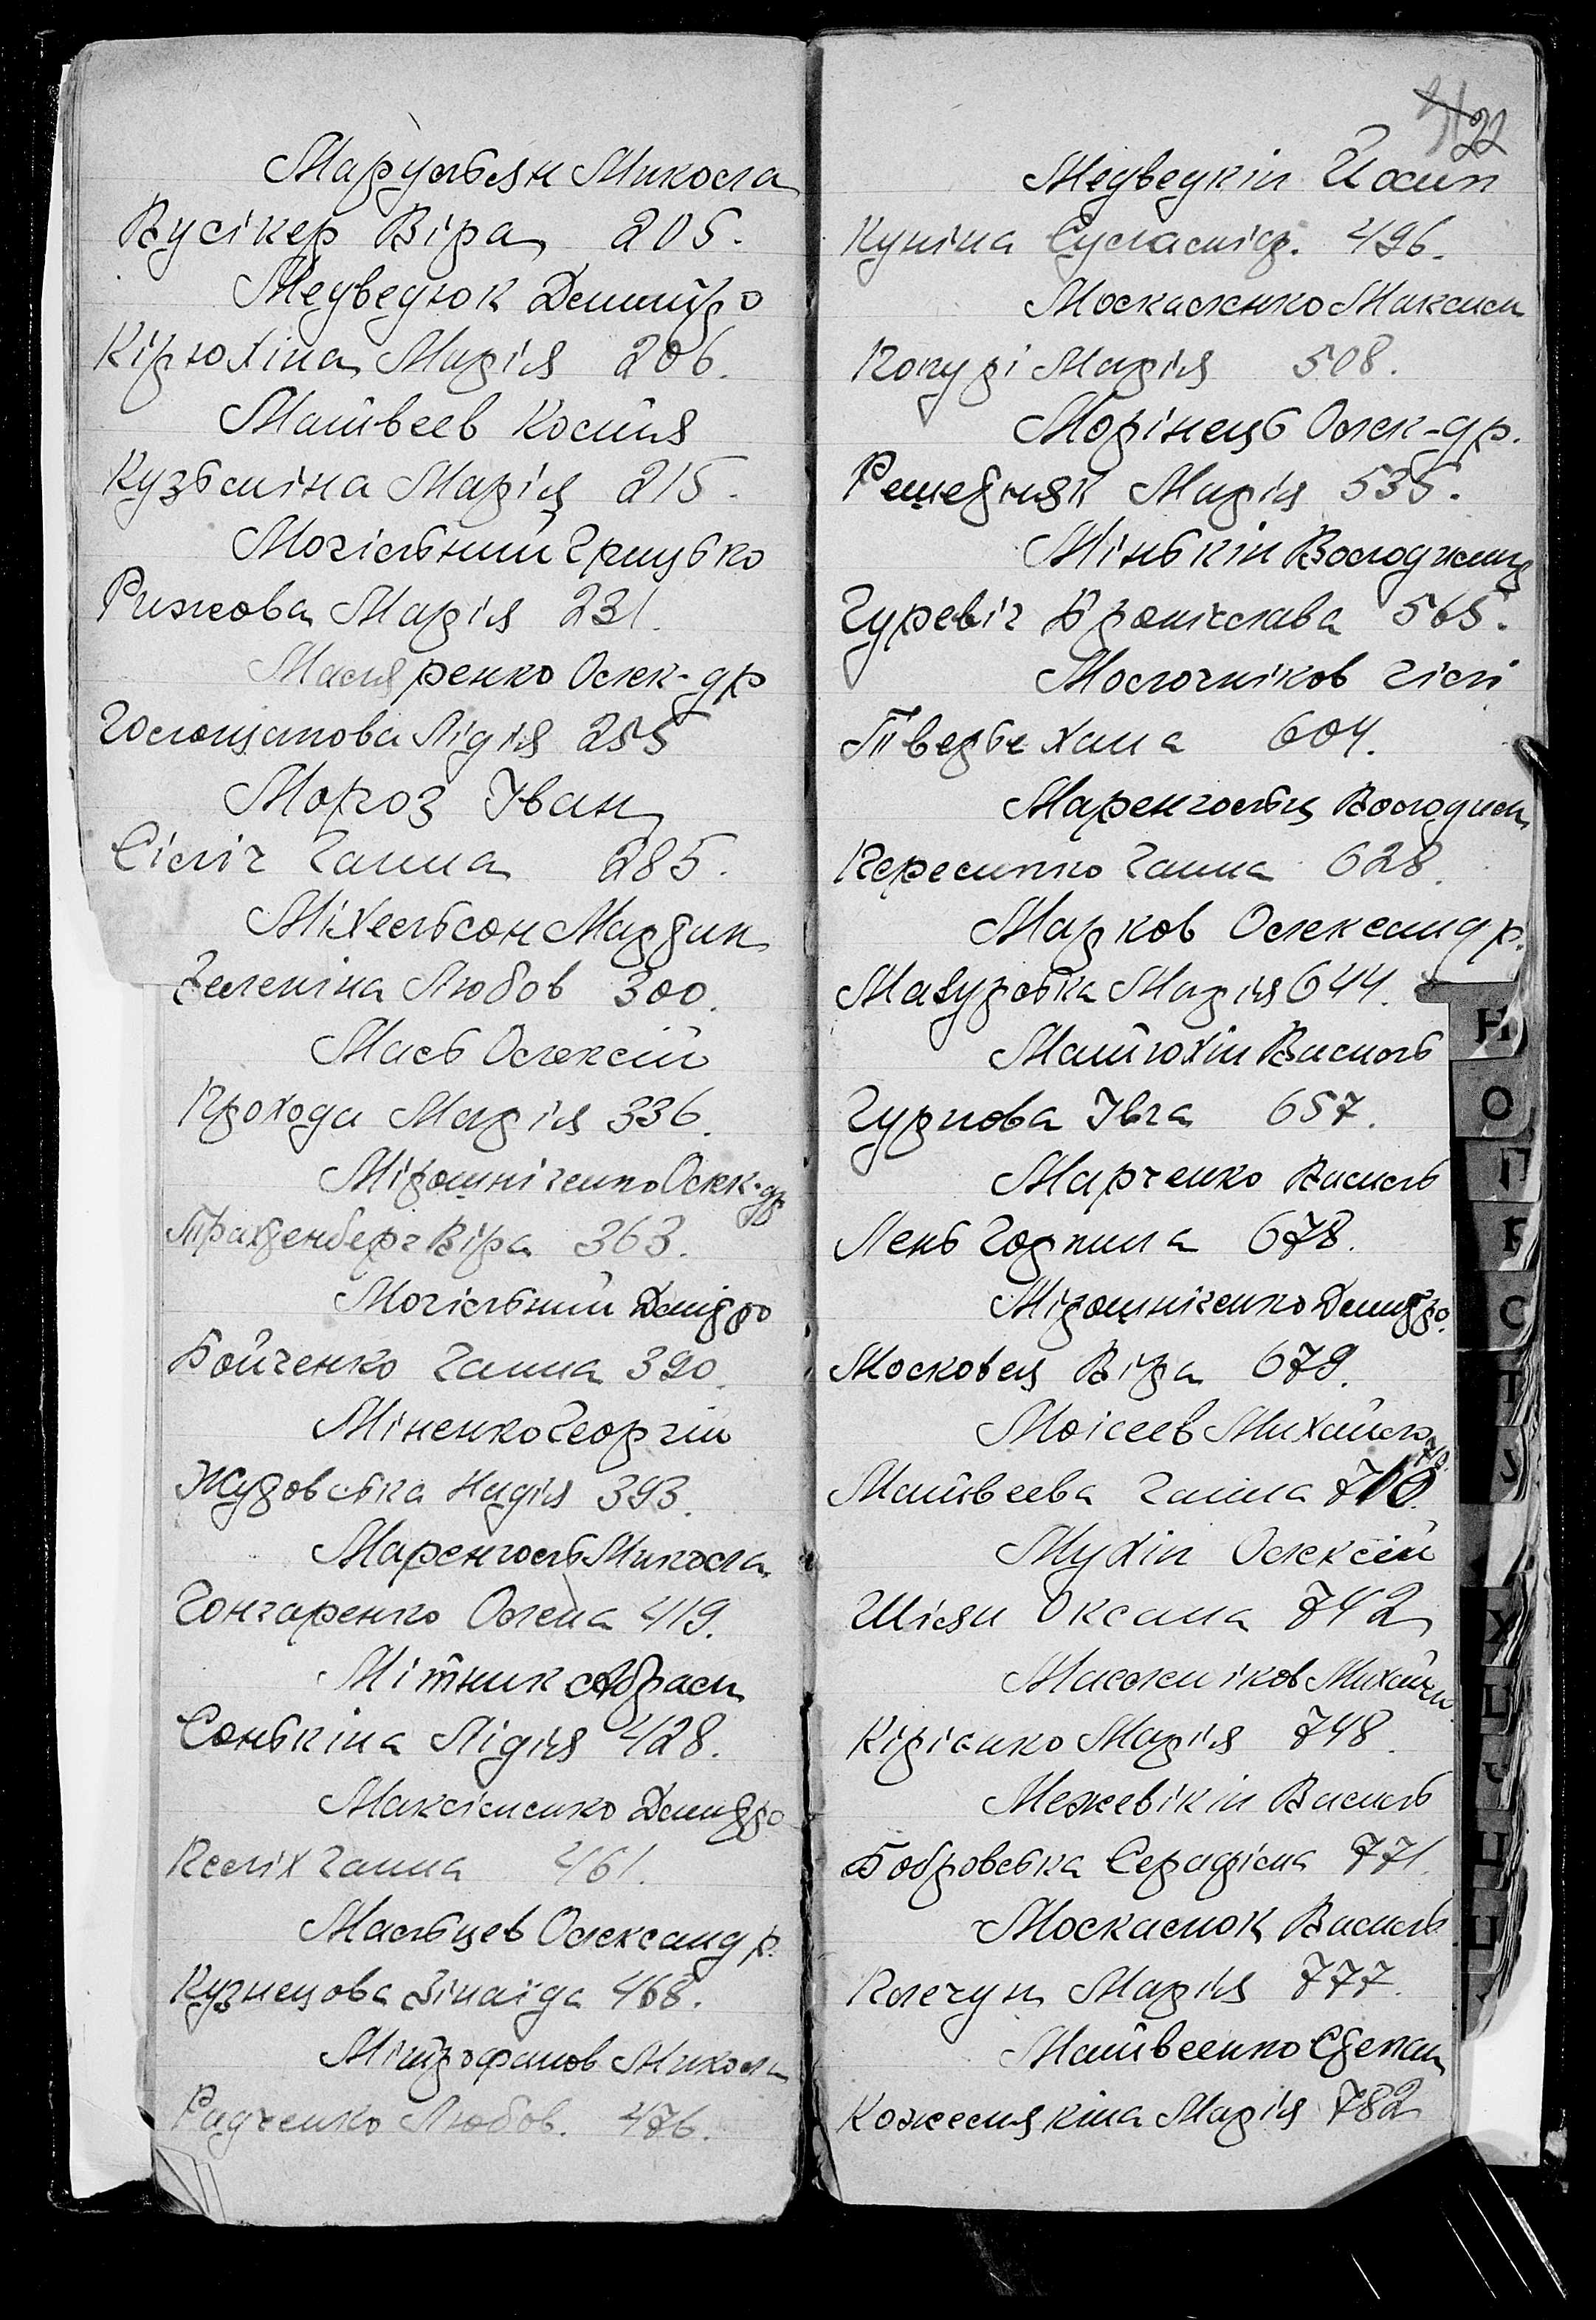 Марульян Микола
Кусікер Віра 205.
Медведюк Дмитро
Кірюхіна Марія 206.
Матвеев Костя
Кузьміна Марія 215.
Могільний Грицько
Рижова Марія 231.
Маляренко Олек-др
Голощапова Лідія 255
Мороз Іван
Сіліч Ганна 285.
Міхельсон Мардин
Зеленіна Любов 300.
Мась Олексій
Прохода Марія 336.
Мірошніченко Олек-др
Трахтенберг Віра 363.
Могільний Дмітро
Бойченко Ганна 390.
Міненко Георгій
Жудовська Надія 393.
Маренголь Микола
Гончаренко Олена 419.
Мітник Абрам
Сонькіна Лідія 428.
Максіменко Дмитро
Келіх Ганна 461.
Мальцев Олександр.
Кузнецова Зінаіда 468.
Мітрофанов Микола
Радченко Любов. 476.
22
Медведкін Йосип
Куніна 496.
Москаленко Максим
Марія 508.
Морінець Олек-др.
Решетняк Марія 535.
Мінькін Володимир
Гуревіч Броніслава 565.
Молочніков
Хана 604.
Маренгольц Володим
Ганна 628.
Марков Олександр.
Мазурська Марія 644.
Матюхін Василь
Гурнова Івга 657.
Марченко Василь
Лень Горпина 678.
Мірошніченко Дмитро.
Московец Віра 679.
Моісеев Михайло
710.
Матвеева Ганна 710.
Мухін Олексій
Шілян Оксана 742
Михайло
Кірієнко Марія 748.
Межевікін Василь
Бобровська Серафіма 771.
Москалюк Василь
Колечун Марія 777.
Матвеенко Степан
Кожемякіна Марія 782
Н
О
П
Р
С
Т
У
Х
Ц